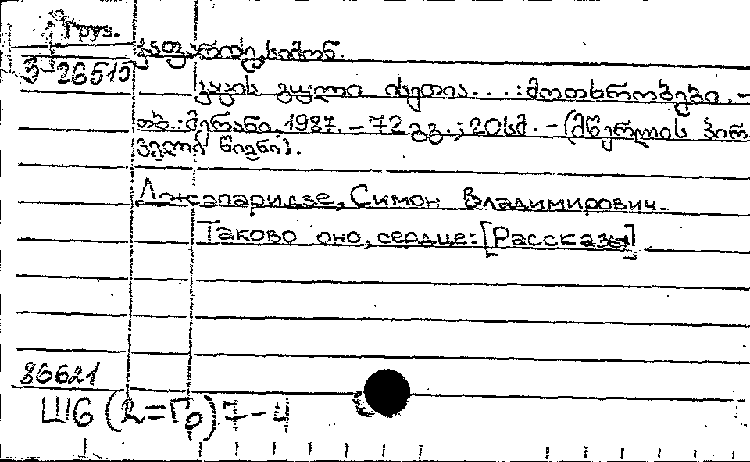 Груз.
3-26515 ჯაფარიძე, სიმონ.
კაცის გული ისეთია... : მოთხრობები. -
თბ. : მერანი, 1987. - 72 გვ. ; 20 სმ. - (მწერლის პირ
ველი წიგნი).
Джапаридзе, Симон Владимирович.
Таково оно, сердце: [Рассказы]
86621
Ш6(2=Гр)7-4